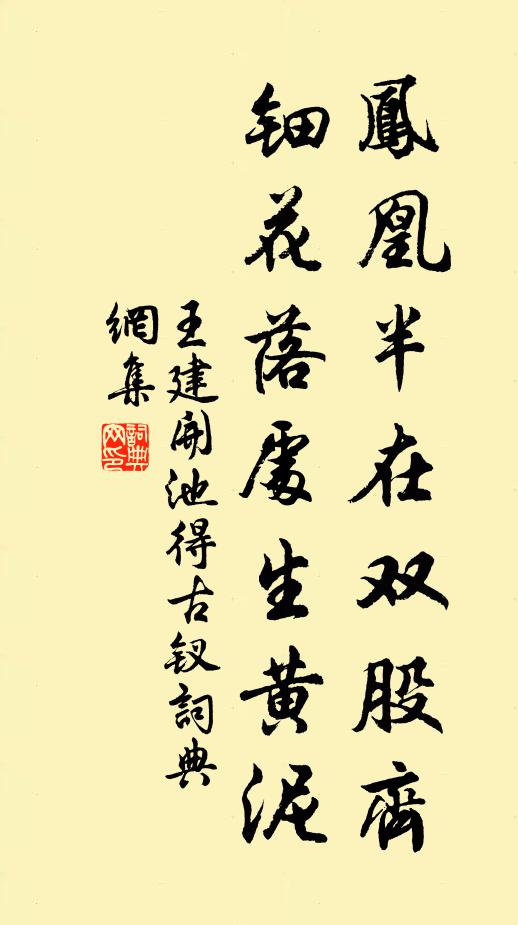 鳳凰半在双股齊
钿花落處生黄泥
王建開池得古钗詞典
網集
詞典
网印